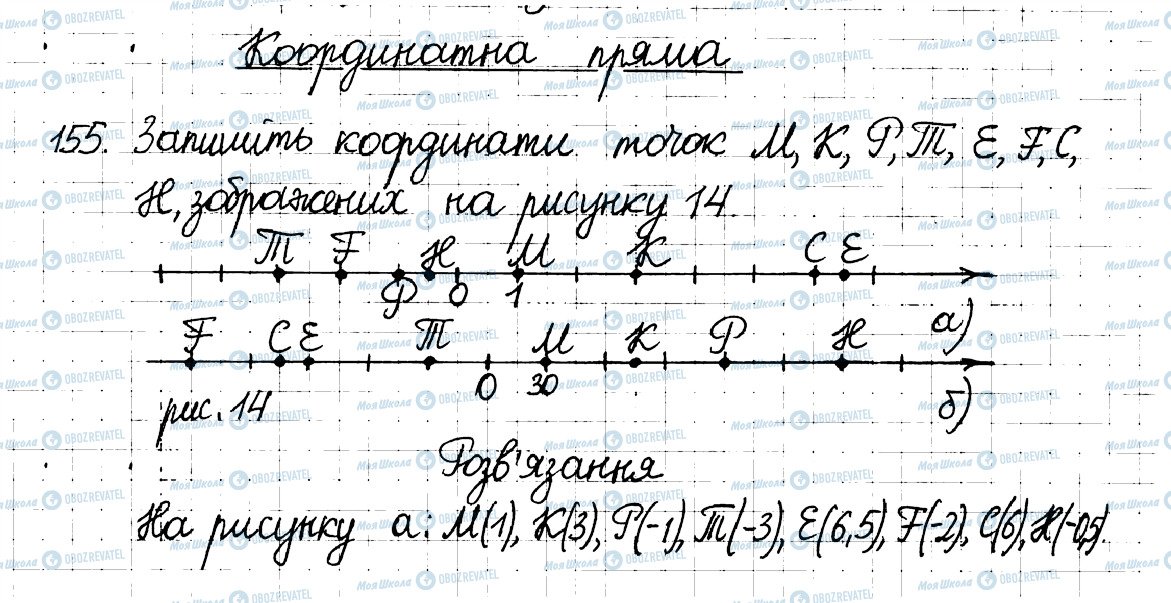 Координатна пряма
155. Запишіть координати точок М, К, Р, Т, Е, F, С,
Н, зображених на рисунку 14.
Т F Н М К С Е
Р 0 1 а)
F С Е Т М К Р Н
0 30 б)
рис. 14
Розв'язання
На рисунку а: М(1), К(3), Р(-1), Т(-3), Е(6,5), F(-2), С(6), Н(-0,5).